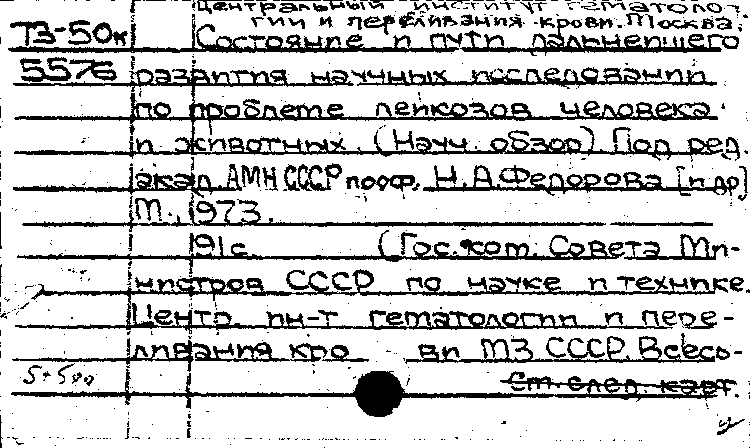 Центральный институт гематоло-
гии и переливания крови. Москва.
ТЗ-50к Состояние и пути дальнейшего
5576 развития научных исследований
по проблеме лейкозов человека
и животных. (Науч. обзор) Под ред.
акад. АМН СССР проф. Н.А.Федорова [и др]
М., 1973.
191с. (Гос. ком. Совета Ми-
нистров СССР по науке и технике.
Центр. ин-т гематологии и пере-
ливания кро ви МЗ СССР. Всесо-
См. след. карт.